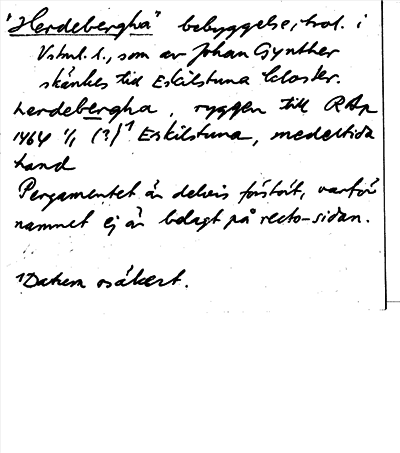 "Herdebergha" bebyggelse, trol. i
Vstml. l., som av Johan Gynther
skänkes till Eskilstuna kloster.
herdebergha, ryggen till RAp
1464 1/1 (?)¹ Eskilstuna, medeltida
hand
Pergamentet är delvis förstört, varför
namnet ej är belagt på recto-sidan.
¹Datum osäkert.